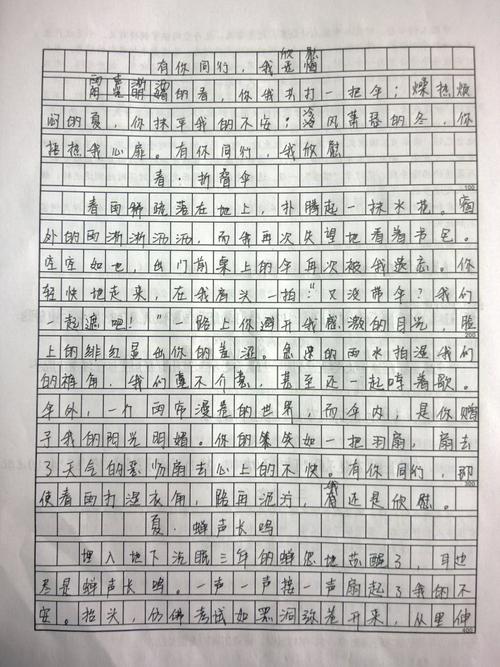 有你同行，我欣慰
雨意潇潇的春，你我共打一把伞；燥热烦
闷的夏，你抹平我的不安；凌风萧瑟的冬，你
捂热我心扉。有你同行，我欣慰
春·折叠伞
春雨稀疏落在地上，扑腾起一抹水花。窗
外的雨淅淅沥沥，而我再次失望地看着书包。
空空如也，出门前桌上的伞再次被我遗忘。你
轻快地走来，在我肩头一拍："又没带伞？我们
一起遮吧！"一路上你避开我感激的目光，脸
上的绯红显出你的羞涩。忽来的雨水拍湿我们
的裤角，我们毫不介意，甚至还一起哼着歌。
伞外，一个雨帘漫卷的世界，而伞内，是你赠
予我的阳光明媚。你的笑如一把羽扇，扇去
了天气的恶劣扇去心上的不快。有你同行，即
使春雨打湿衣角，路再泥泞，我还是欣慰。
夏·蝉声长鸣
埋入地下沉眠三年的蝉忽地苏醒了，耳边
尽是蝉声长鸣。一声一声接一声扇起了我的不
安。抬头，仿佛考试如黑洞弥卷开来，从里伸
100
200
300
400